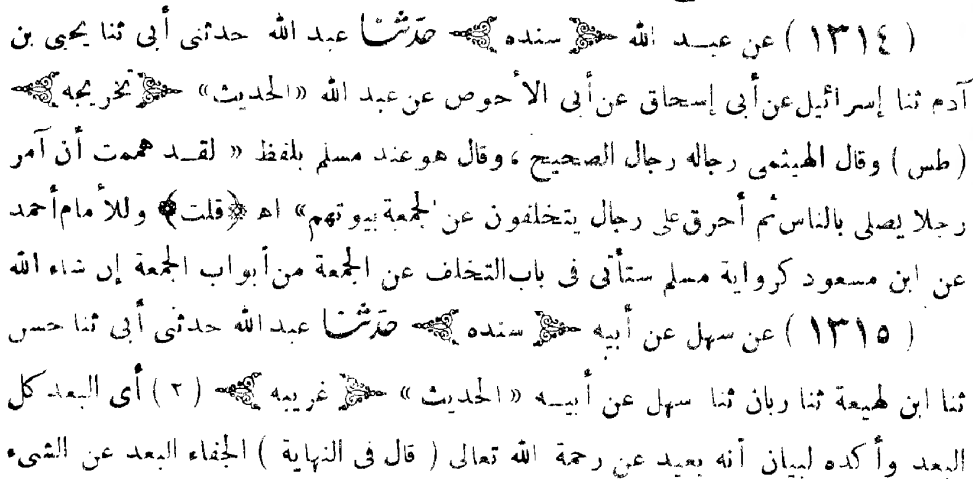 ( ١٣١٤ ) عن عبـد الله ﴿ سنده ﴾ حدّثنا عبد الله حدثنى أبى ثنا يحيى بن
آدم ثنا إسرائيل عن أبى إسحاق عن أبى الأحوص عن عبد الله «الحديث» ﴿ تخريجه ﴾
( طس ) وقال الهيثمى رجاله رجال الصحيح ، وقال هو عند مسلم بلفظ « لقـد هممت أن آمر
رجلا يصلى بالناس ثم أحرق على رجال يتخلفون عن الجمعة بيوتهم» اهـ ﴿قلت﴾ وللأمام أحمد
عن ابن مسعود كرواية مسلم ستأتى فى باب التخلف عن الجمعة من أبواب الجمعة إن شاء الله
( ١٣١٥ ) عن سهل عن أبيه ﴿ سنده ﴾ حدّثنا عبد الله حدثنى أبى ثنا حسن
ثنا ابن لهيعة ثنا زبان ثنا سهل عن أبيـه « الحديث » ﴿ غريبه ﴾ ( ٢ ) أى البعد كل
البعد وأكده لبيان أنه بعيد عن رحمة الله تعالى ( قال فى النهاية ) الجفاء البعد عن الشىء